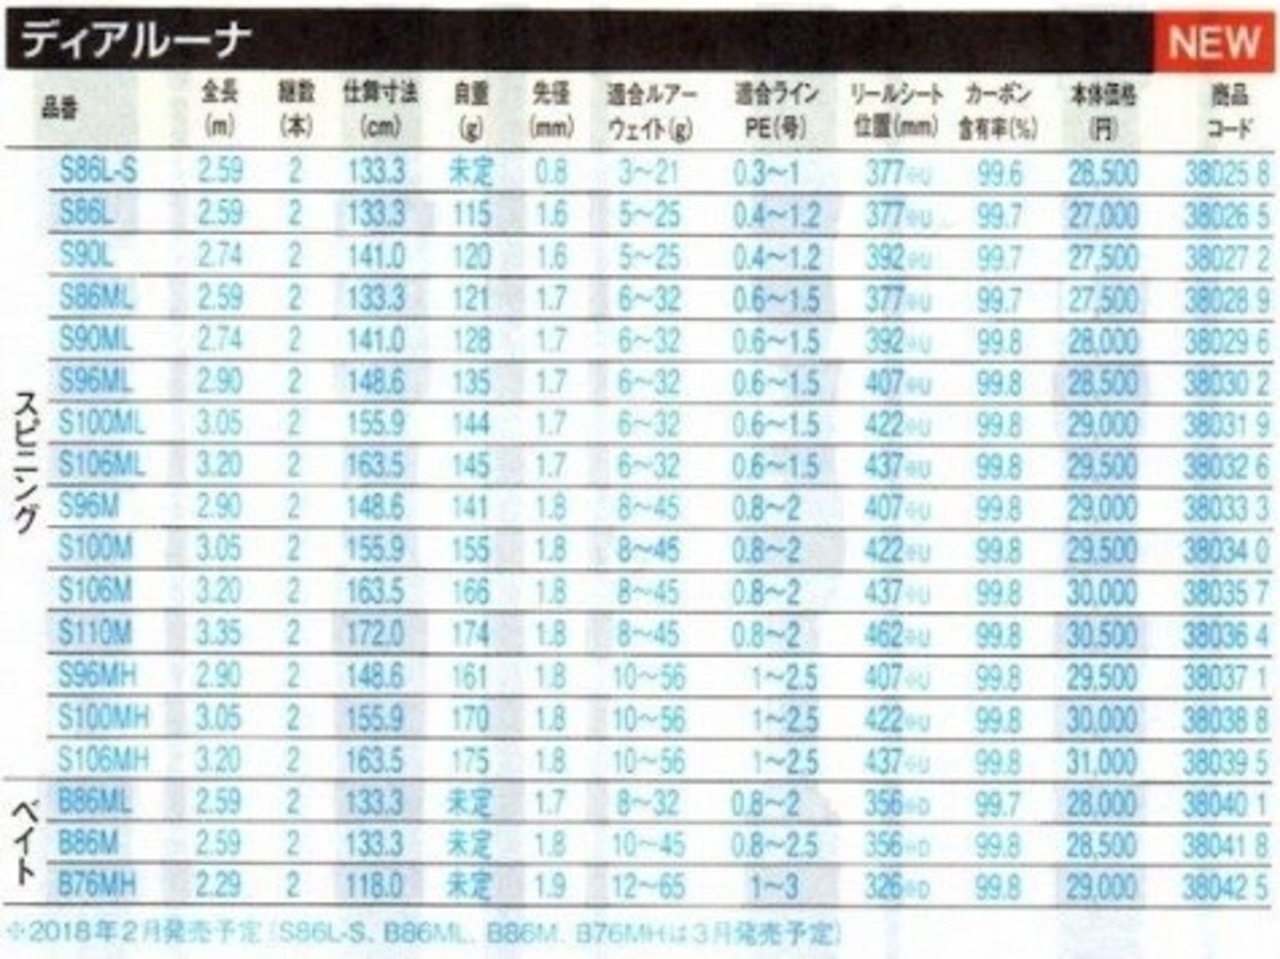 ディアルーナ NEW
品番 全長(m) 継数(本) 仕舞寸法(cm) 自重(g) 先径(mm) 適合ルアーウェイト(g) 適合ラインPE(号) リールシート位置(mm) カーボン含有率(%) 本体価格(円) 商品コード
スピニング
S86L-S 2.59 2 133.3 未定 0.8 3〜21 0.3〜1 377※U 99.6 28,500 38025 8
S86L 2.59 2 133.3 115 1.6 5〜25 0.4〜1.2 377※U 99.7 27,000 38026 5
S90L 2.74 2 141.0 120 1.6 5〜25 0.4〜1.2 392※U 99.7 27,500 38027 2
S86ML 2.59 2 133.3 121 1.7 6〜32 0.6〜1.5 377※U 99.7 27,500 38028 9
S90ML 2.74 2 141.0 128 1.7 6〜32 0.6〜1.5 392※U 99.8 28,000 38029 6
S96ML 2.90 2 148.6 135 1.7 6〜32 0.6〜1.5 407※U 99.8 28,500 38030 2
S100ML 3.05 2 155.9 144 1.7 6〜32 0.6〜1.5 422※U 99.8 29,000 38031 9
S106ML 3.20 2 163.5 145 1.7 6〜32 0.6〜1.5 437※U 99.8 29,500 38032 6
S96M 2.90 2 148.6 141 1.8 8〜45 0.8〜2 407※U 99.8 29,000 38033 3
S100M 3.05 2 155.9 155 1.8 8〜45 0.8〜2 422※U 99.8 29,500 38034 0
S106M 3.20 2 163.5 166 1.8 8〜45 0.8〜2 437※U 99.8 30,000 38035 7
S110M 3.35 2 172.0 174 1.8 8〜45 0.8〜2 462※U 99.8 30,500 38036 4
S96MH 2.90 2 148.6 161 1.8 10〜56 1〜2.5 407※U 99.8 29,500 38037 1
S100MH 3.05 2 155.9 170 1.8 10〜56 1〜2.5 422※U 99.8 30,000 38038 8
S106MH 3.20 2 163.5 175 1.8 10〜56 1〜2.5 437※U 99.8 31,000 38039 5
ベイト
B86ML 2.59 2 133.3 未定 1.7 8〜32 0.8〜2 356※D 99.7 28,000 38040 1
B86M 2.59 2 133.3 未定 1.8 10〜45 0.8〜2.5 356※D 99.8 28,500 38041 8
B76MH 2.29 2 118.0 未定 1.9 12〜65 1〜3 326※D 99.8 29,000 38042 5
※2018年2月発売予定(S86L-S、B86ML、B86M、B76MHは3月発売予定)